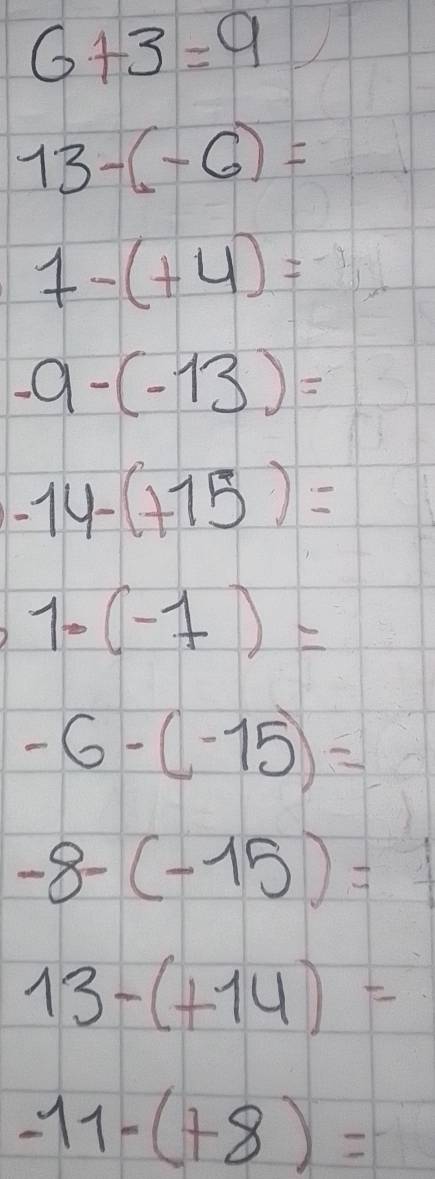 6+3=9
13-(-6)=
7-(+4)=
-9-(-13)=
-14-(+15)=
1-(-7)=
-6-(-15)=
-8-(-15)=
13-(+14)=
-11-(+8)=